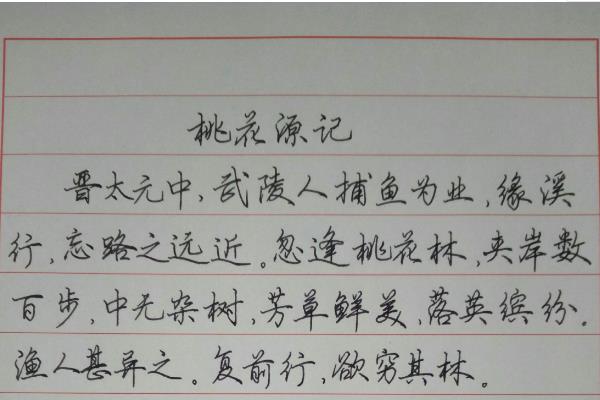 桃花源记
晋太元中,武陵人捕鱼为业,缘溪
行,忘路之远近。忽逢桃花林,夹岸数
百步,中无杂树,芳草鲜美,落英缤纷。
渔人甚异之。复前行,欲穷其林。